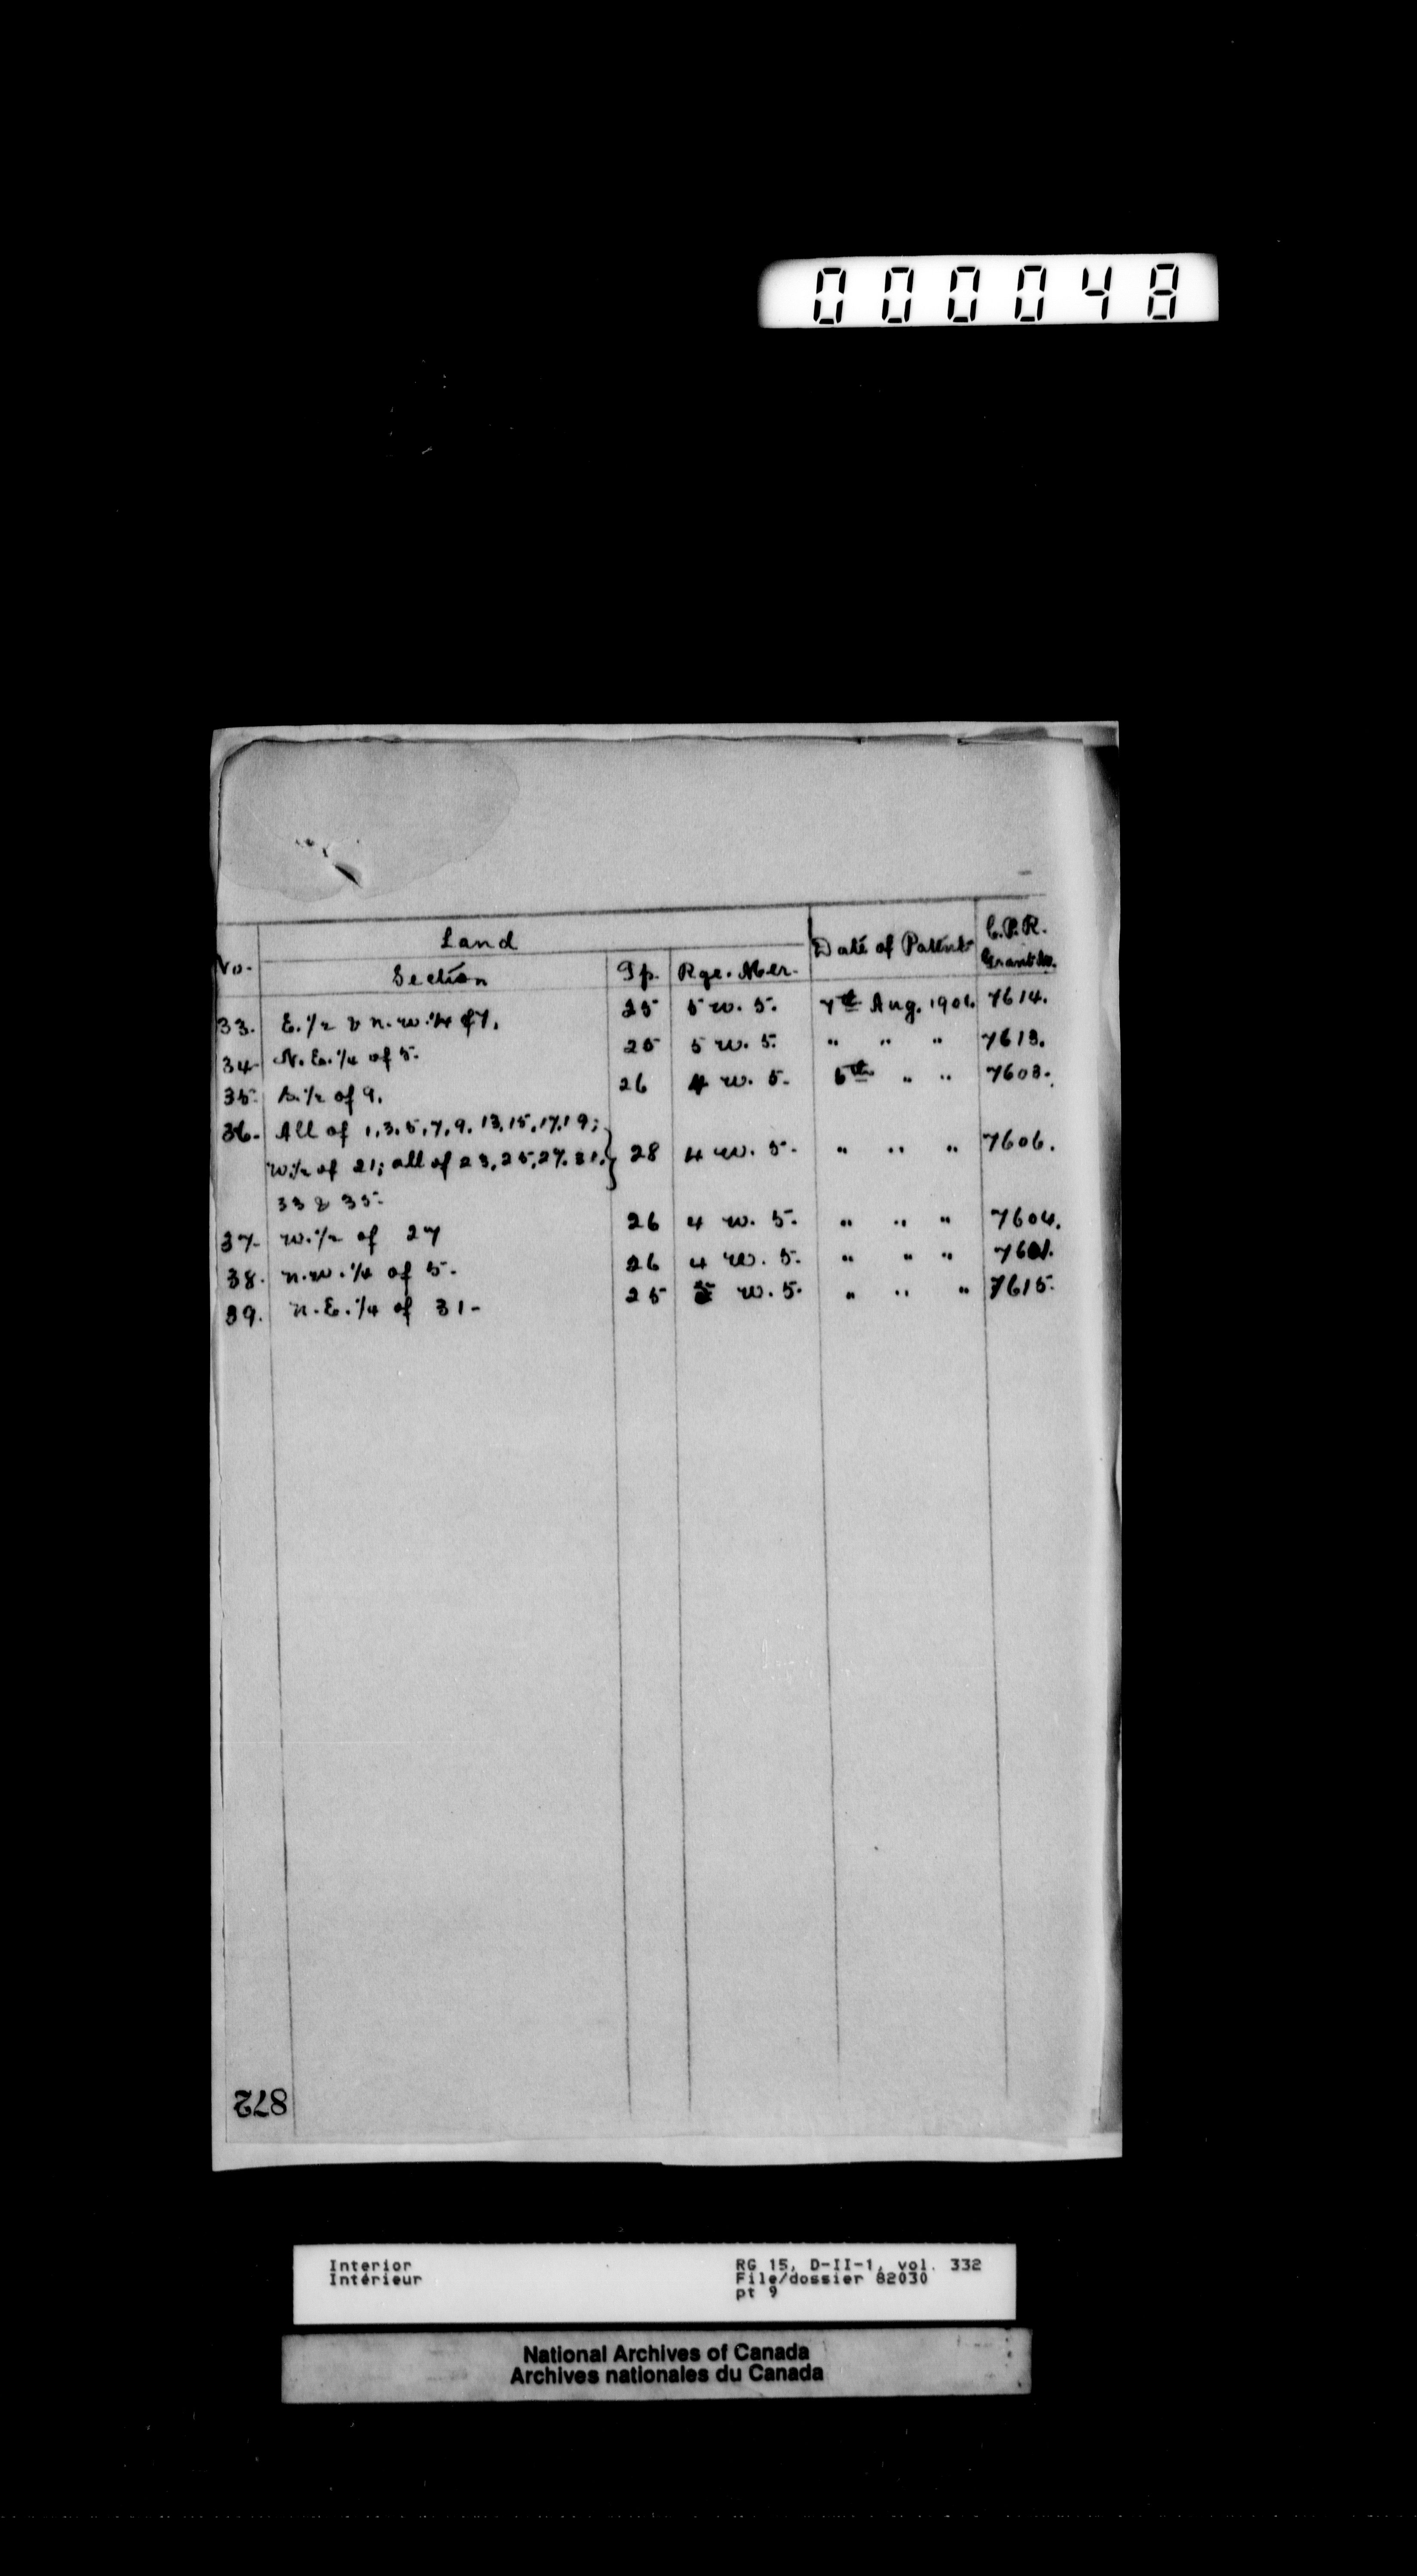 000048
Land
No. Section Tp. Rge. Mer. Date of Patent C.P.R. Grant No.
33. E. 1/2 & N.W. 1/4 of 7. 25 5 W. 5. 7th Aug. 1901. 7614.
34- N.E. 1/4 of 5. 25 5 W. 5. " " " 7613.
35- S. 1/2 of 9. 26 4 W. 5. 6th " " 7603.
36- All of 1, 3, 5, 7, 9, 13, 15, 17, 19;
W. 1/2 of 21; all of 23, 25, 27, 31, } 28 4 W. 5. " " " 7606.
33 & 35-
37- W. 1/2 of 27 26 4 W. 5. " " " 7604.
38. N.W. 1/4 of 5. 26 4 W. 5. " " " 7601.
39. N.E. 1/4 of 31- 25 5 W. 5. " " " 7615.
872
Interior
Intérieur
RG 15, D-II-1, vol. 332
File/dossier 82030
pt 9
National Archives of Canada
Archives nationales du Canada